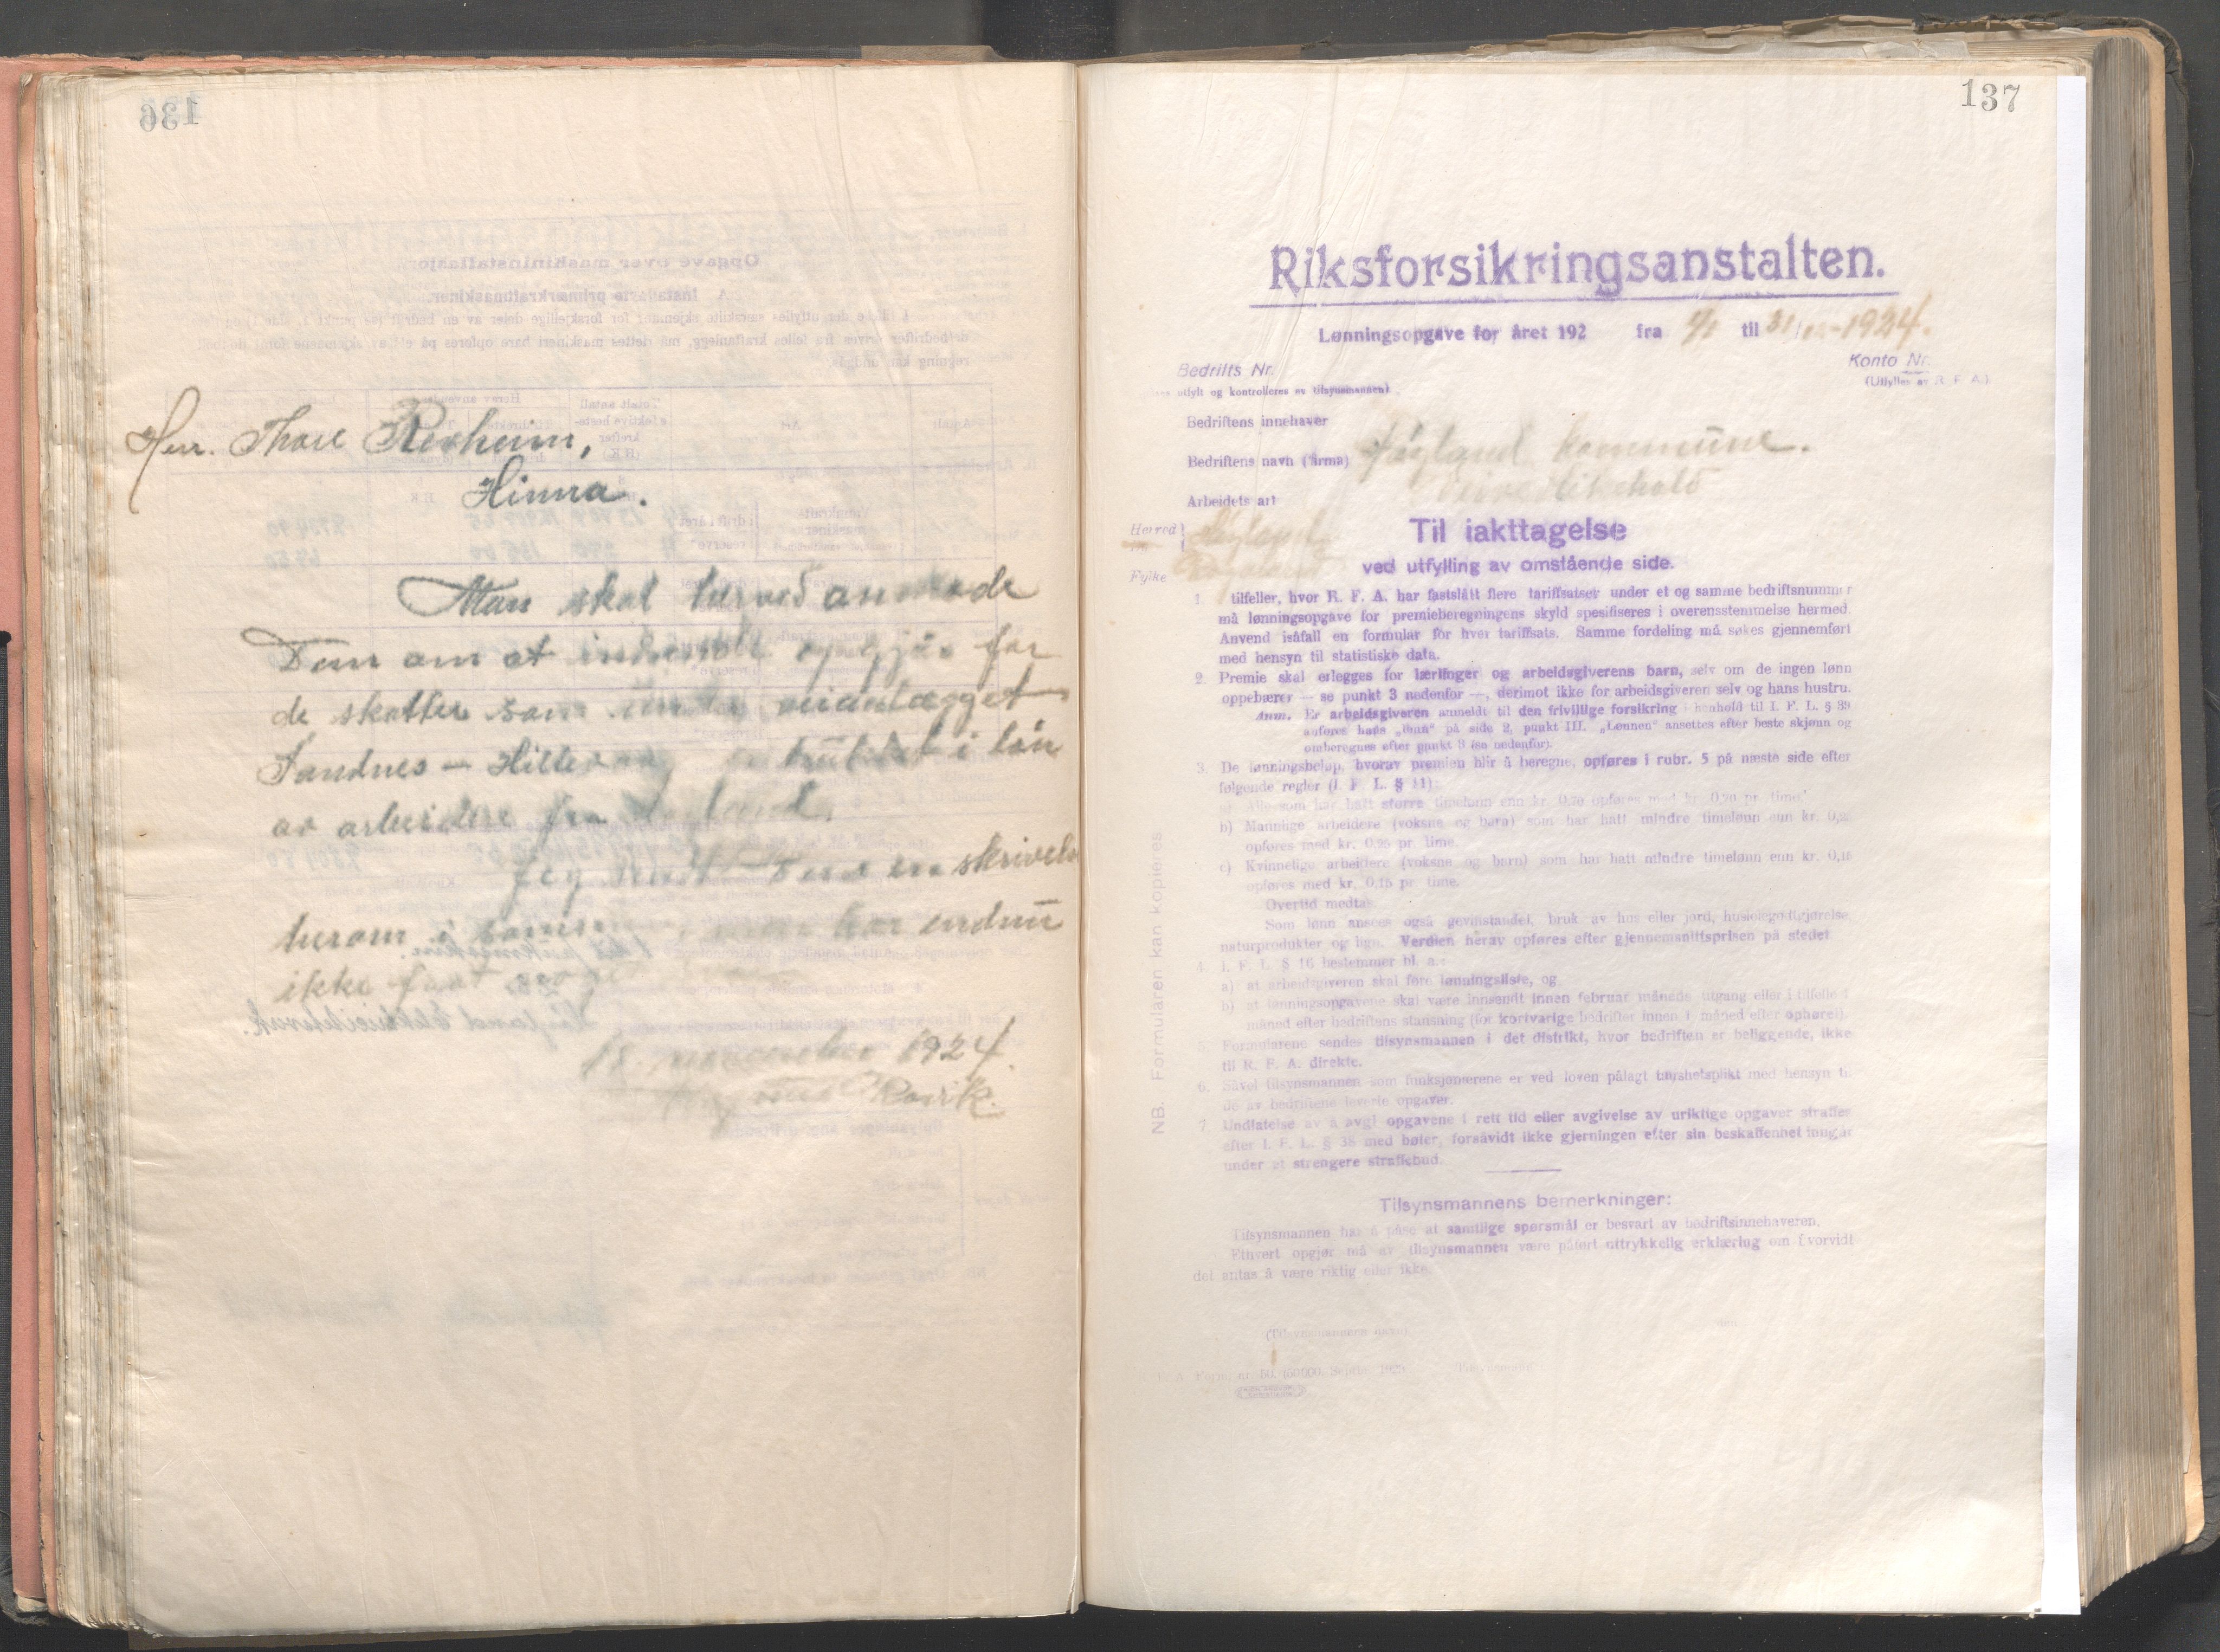 Herr. Thore Revheim,
Hinna.
Man skal herved anmode
Dem om at indsende opgjør for
de skatter som under veianlægget
Sandnes – Hillevaag er trukket i løn
av arbeidere fra Høyland.
Jeg sendte Dem en skrivelse
herom i sommer, men har endnu
ikke faat svar.
18. november 1924.
Rovik.
137
Riksforsikringsanstalten.
Lønningsopgave for året 192 fra 1/1 til 31/12-1924.
Bedrifts Nr.
Konto Nr.
utfylt og kontrolleres av tilsynsmannen)
(Utfylles av R. F. A.)
Bedriftens innehaver
Bedriftens navn (firma) Høyland kommune.
Arbeidets art Veivedlikehold
Herred Høyland
Fylke Rogaland
Til iakttagelse
ved utfylling av omstående side.
1. tilfeller, hvor R. F. A. har fastslått flere tariffsatser under et og samme bedriftsnummer
må lønningsopgave for premieberegningens skyld spesifiseres i overensstemmelse hermed.
Anvend isåfall en formular for hver tariffsats. Samme fordeling må søkes gjennemført
med hensyn til statistiske data.
2. Premie skal erlegges for lærlinger og arbeidsgiverens barn, selv om de ingen lønn
oppebærer — se punkt 3 nedenfor —, derimot ikke for arbeidsgiveren selv og hans hustru.
Anm. Er arbeidsgiveren anmeldt til den frivillige forsikring i henhold til I. F. L. § 39
anføres hans „lønn" på side 2, punkt III. „Lønnen" ansettes efter beste skjønn og
omberegnes efter punkt 3 (se nedenfor).
3. De lønningsbeløp, hvorav premien blir å beregne, opføres i rubr. 5 på næste side efter
følgende regler (I. F. L. § 11):
a) Alle som har hatt større timelønn enn kr. 0,70 opføres med kr. 0,70 pr. time.
b) Mannlige arbeidere (voksne og barn) som har hatt mindre timelønn enn kr. 0,25
opføres med kr. 0,25 pr. time.
c) Kvinnelige arbeidere (voksne og barn) som har hatt mindre timelønn enn kr. 0,15
opføres med kr. 0,15 pr. time.
Overtid medtas.
Som lønn ansees også gevinstandel, bruk av hus eller jord, husleiegodtgjørelse,
naturprodukter og lign. Verdien herav opføres efter gjennemsnittsprisen på stedet.
4. I. F. L. § 16 bestemmer bl. a.:
a) at arbeidsgiveren skal føre lønningsliste, og
b) at lønningsopgavene skal være innsendt innen februar måneds utgang eller i tilfelle 1
måned efter bedriftens stansning (for kortvarige bedrifter innen 1 måned efter ophøret).
5. Formularene sendes tilsynsmannen i det distrikt, hvor bedriften er beliggende, ikke
til R. F. A. direkte.
6. Såvel tilsynsmannen som funksjonærene er ved loven pålagt taushetsplikt med hensyn til
de av bedriftene leverte opgaver.
7. Undlatelse av å avgi opgavene i rett tid eller avgivelse av uriktige opgaver straffes
efter I. F. L. § 38 med bøter, forsåvidt ikke gjerningen efter sin beskaffenhet inngår
under et strengere straffebud.
NB. Formularen kan kopieres
Tilsynsmannens bemerkninger:
Tilsynsmannen har å påse at samtlige spørsmål er besvart av bedriftsinnehaveren.
Ethvert opgjør må av tilsynsmannen være påført uttrykkelig erklæring om hvorvidt
det antas å være riktig eller ikke.
den
(Tilsynsmannens navn)